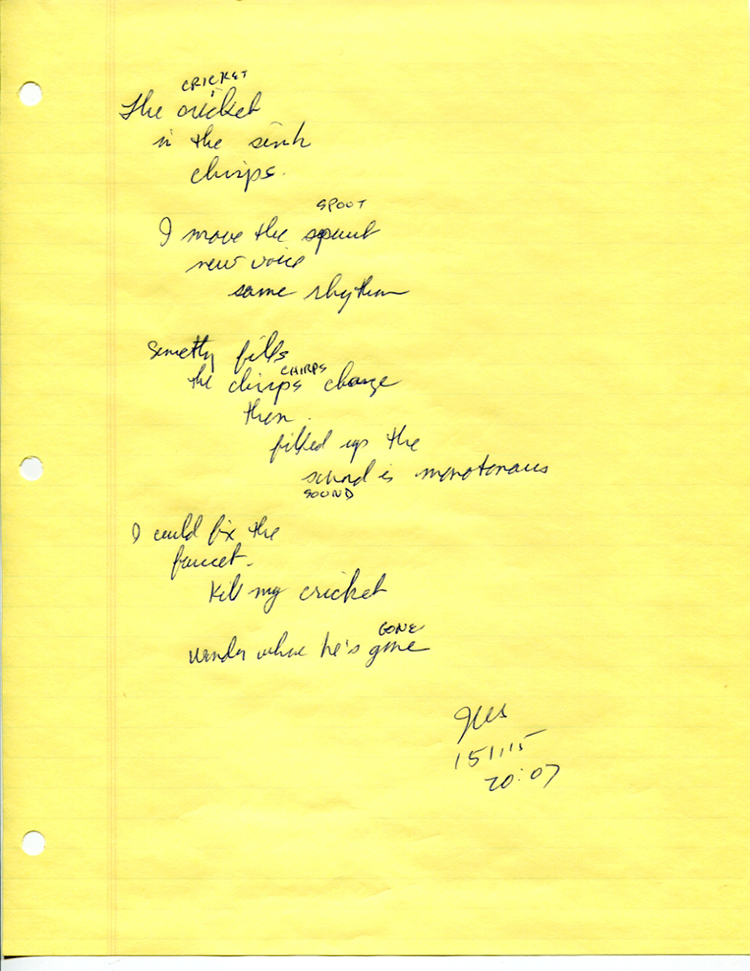 CRICKET
The cricket
in the sink
chirps.
SPOUT
I move the spout
new voice
same rhythm
fills
CHIRPS
the chirps change
then.
filled up the
sound is monotonous
SOUND
I could fix the
faucet.
Kill my cricket
GONE
wonder where he's gone
151115
20:07